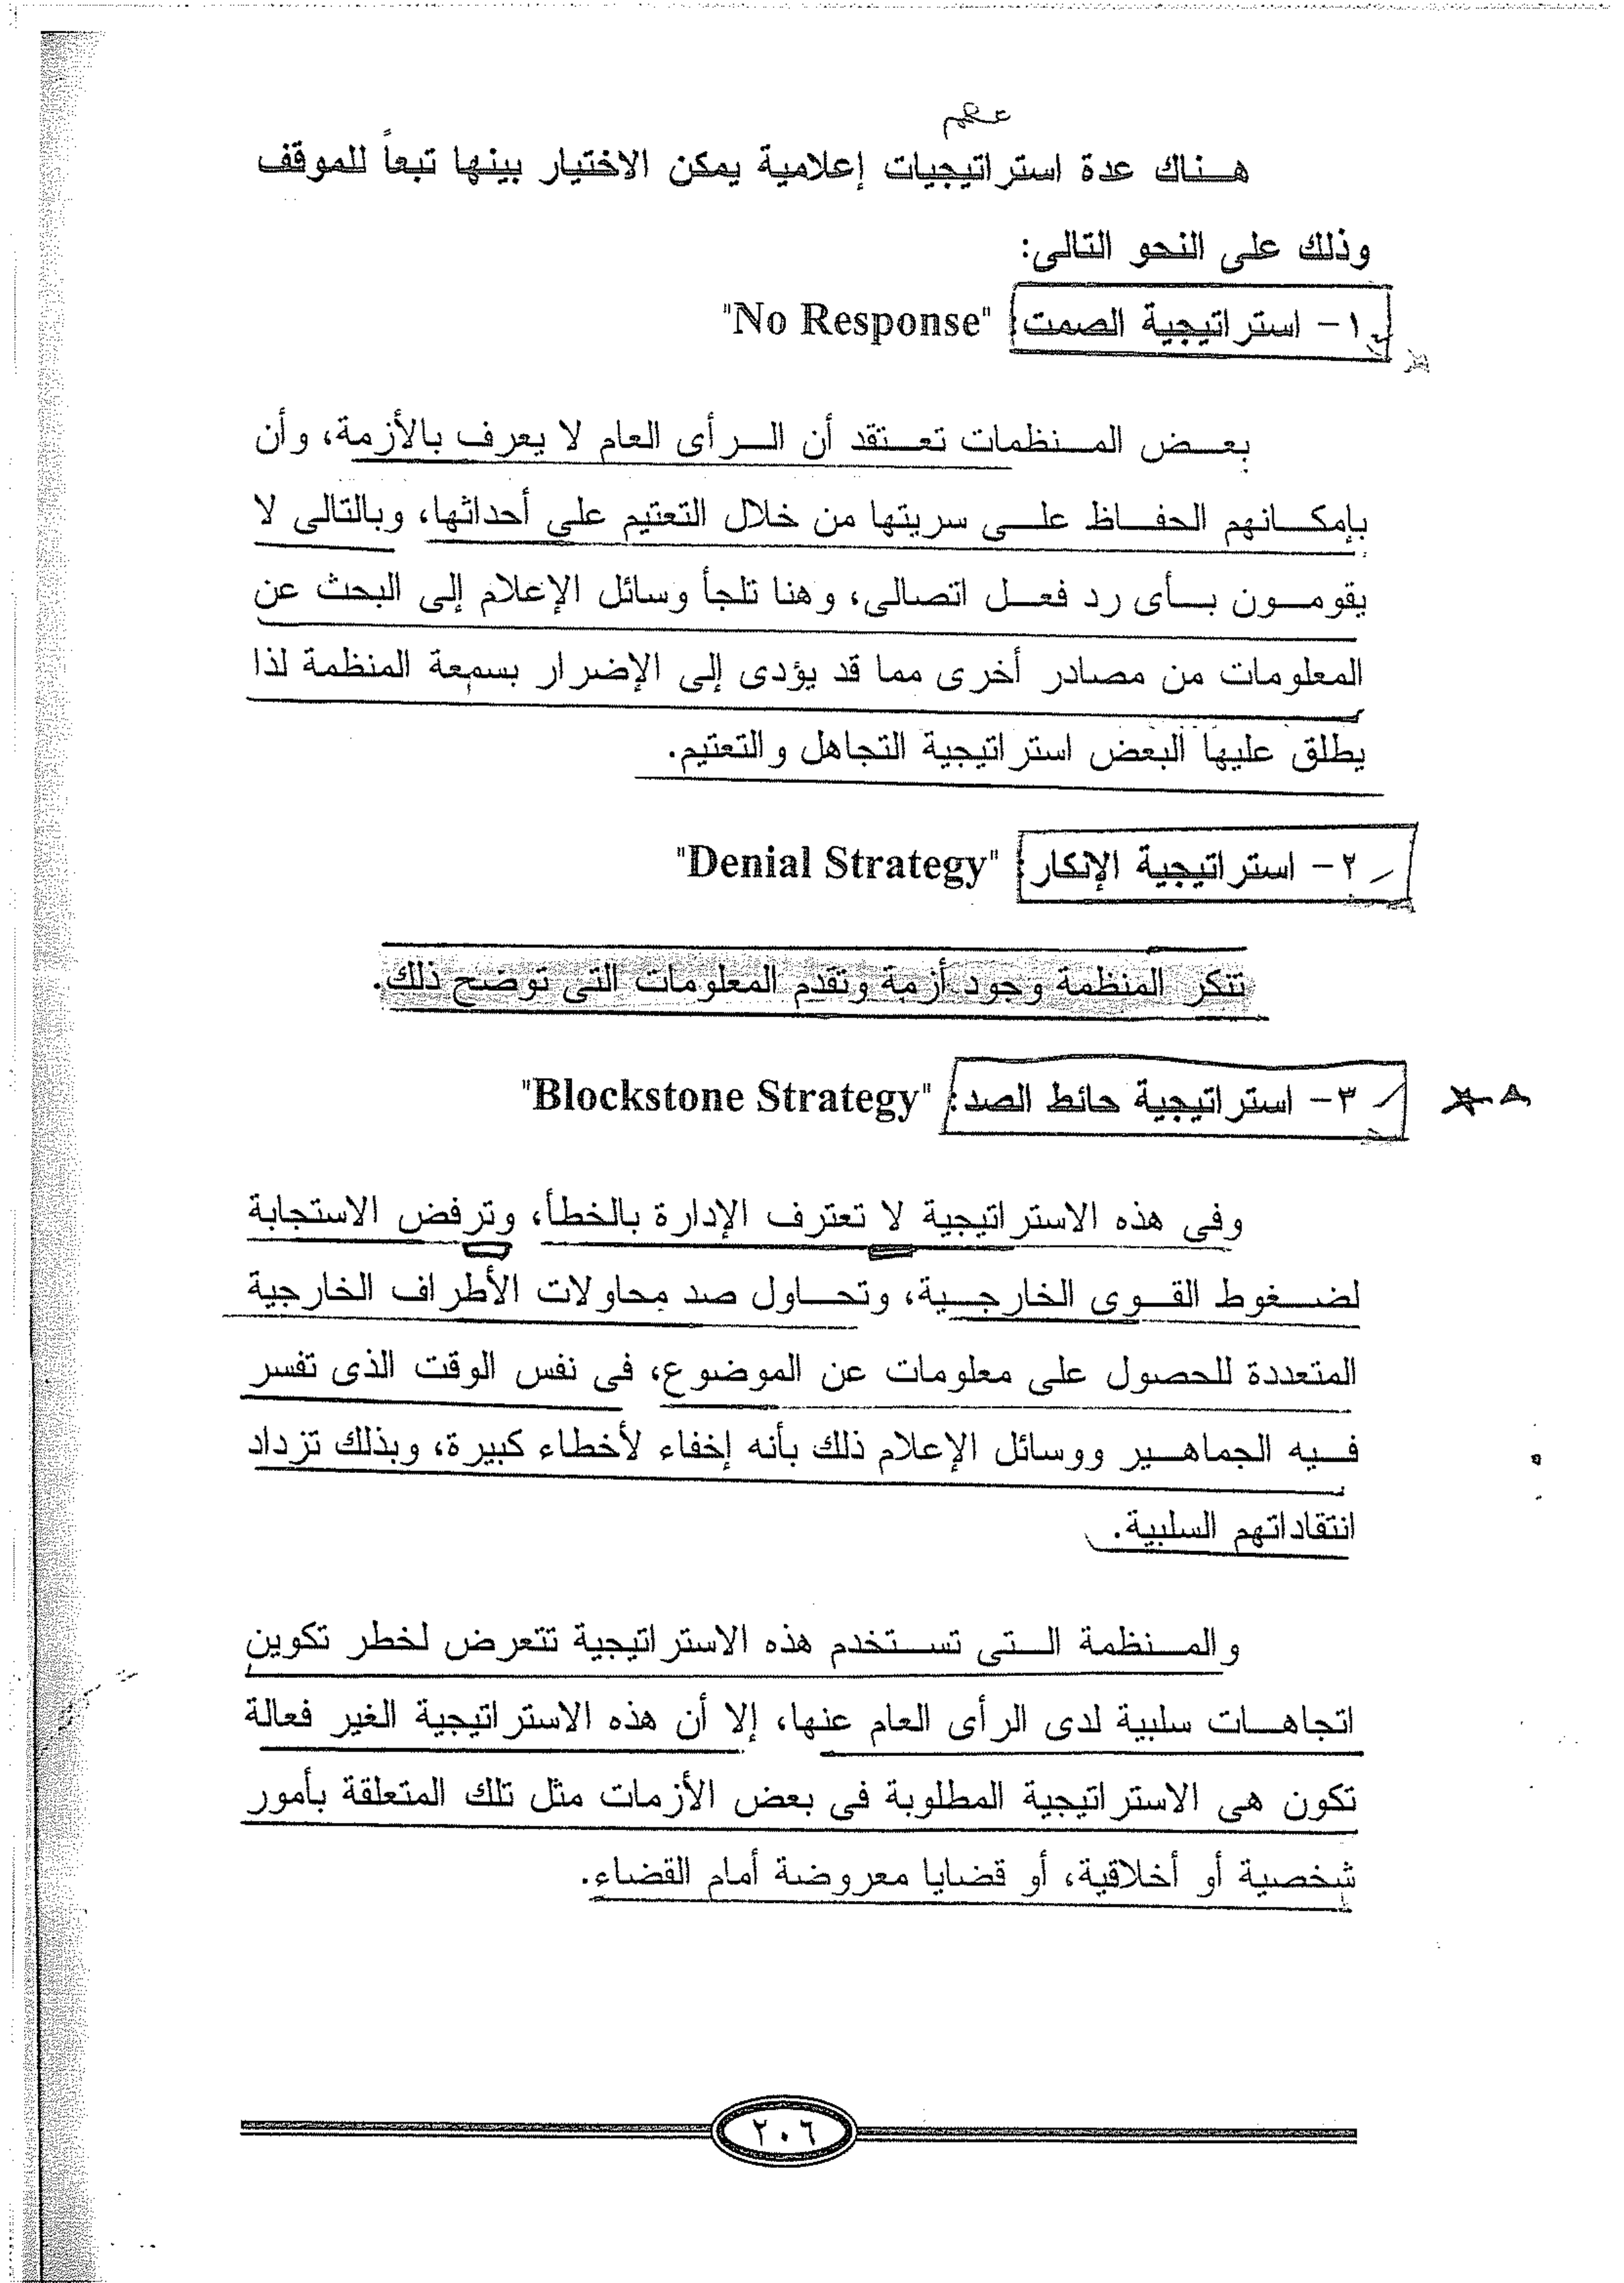 هناك عدة استراتيجيات إعلامية يمكن الاختيار بينها تبعاً للموقف
وذلك على النحو التالى:
١- استراتيجية الصمت: "No Response"
بعض المنظمات تعتقد أن الرأى العام لا يعرف بالأزمة، وأن
بإمكانهم الحفاظ على سريتها من خلال التعتيم على أحداثها، وبالتالى لا
يقومون بأى رد فعل اتصالى، وهنا تلجأ وسائل الإعلام إلى البحث عن
المعلومات من مصادر أخرى مما قد يؤدى إلى الإضرار بسمعة المنظمة لذا
يطلق عليها البعض استراتيجية التجاهل والتعتيم.
٢- استراتيجية الإنكار: "Denial Strategy"
تنكر المنظمة وجود أزمة وتقدم المعلومات التى توضح ذلك.
٣- استراتيجية حائط الصد: "Blockstone Strategy"
وفى هذه الاستراتيجية لا تعترف الإدارة بالخطأ، وترفض الاستجابة
لضغوط القوى الخارجية، وتحاول صد محاولات الأطراف الخارجية
المتعددة للحصول على معلومات عن الموضوع، فى نفس الوقت الذى تفسر
فيه الجماهير ووسائل الإعلام ذلك بأنه إخفاء لأخطاء كبيرة، وبذلك تزداد
انتقاداتهم السلبية.
والمنظمة التى تستخدم هذه الاستراتيجية تتعرض لخطر تكوين
اتجاهات سلبية لدى الرأى العام عنها، إلا أن هذه الاستراتيجية الغير فعالة
تكون هى الاستراتيجية المطلوبة فى بعض الأزمات مثل تلك المتعلقة بأمور
شخصية أو أخلاقية، أو قضايا معروضة أمام القضاء.
٢٠٦